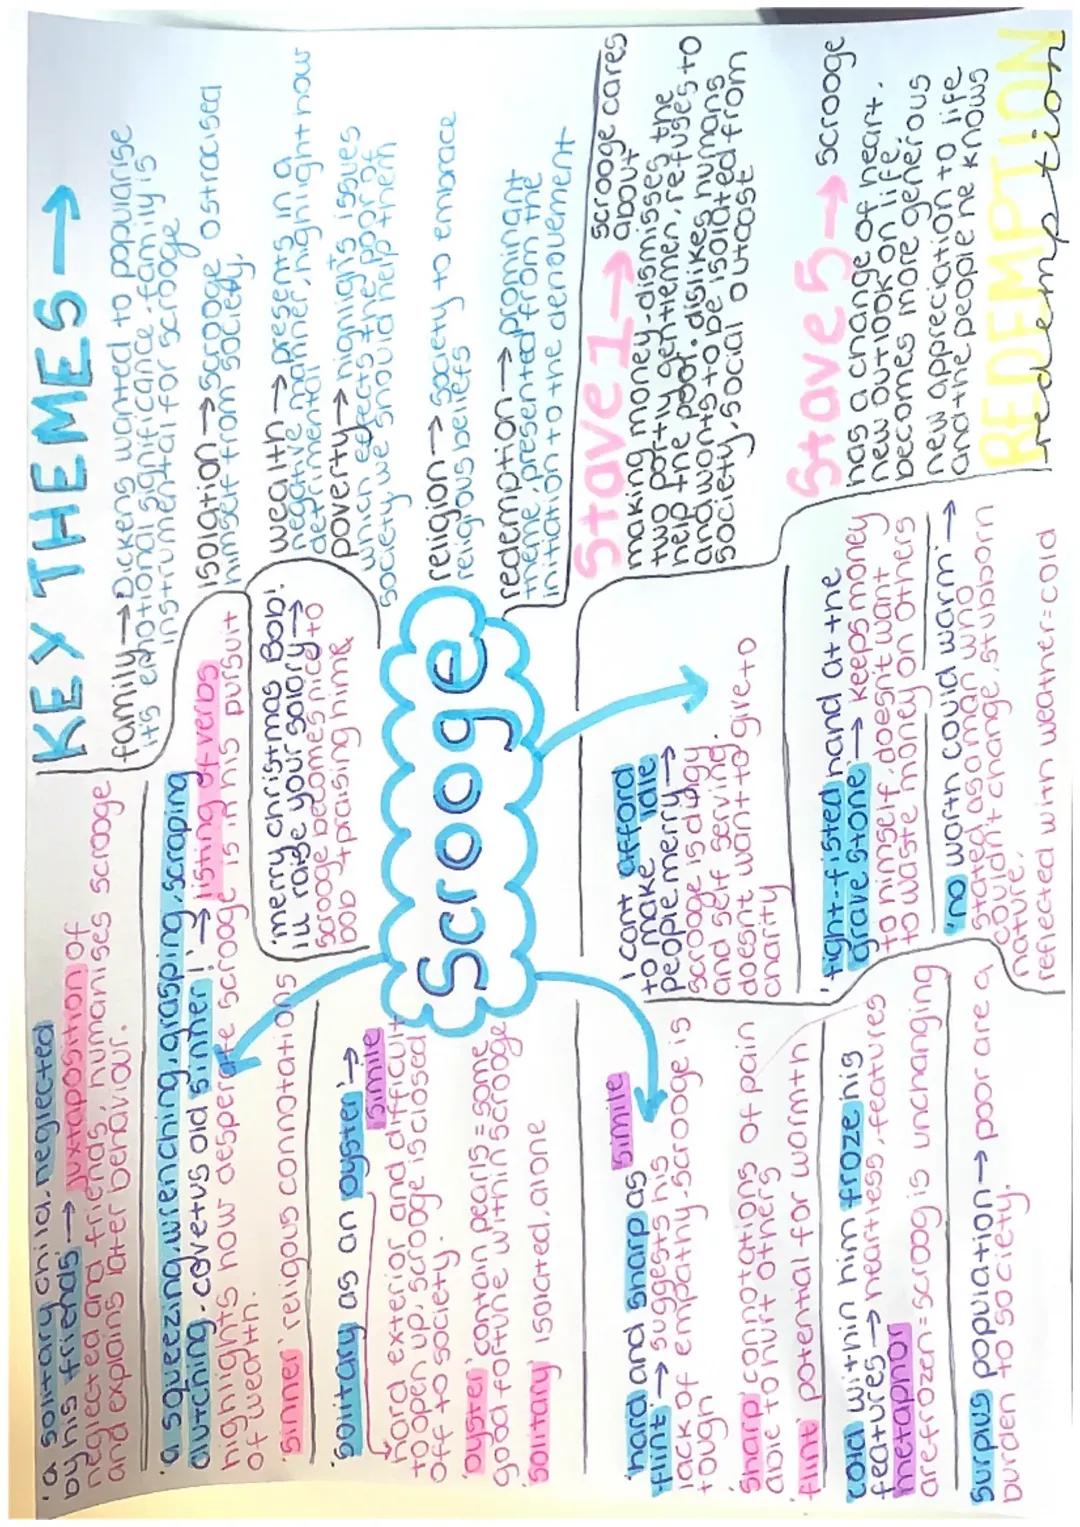 'a solitary child, neglected
by his friends' → juxtaposition of
neglected and friends, humanises scrooge
and explains later behaviour.
'a squeezing, wrenching, grasping, scraping
clutching, covetus old sinner!' → listing of verbs
highlights how desperate scrooge is in his pursuit
of wealth.
'sinner' religous connotations
'solitary as an oyster' →
simile
hard exterior and difficult
to open up, scrooge is closed
off to society.
'oyster' contain pearls = some
good fortune within scrooge
'solitary' isolated, alone
'hard and sharp as simile
flint' → suggests his
lack of empathy - scrooge is
tough
'sharp' connotations of pain
able to hurt others
'flint' potential for warmth
cold within him froze his
features → heartless, features
metaphor
are frozen = scroog is unchanging
surplus population → poor are a
burden to society.
KEY THEMES →
family → Dickens wanted to popularise
it's emotional significance, family is
instrumental for scrooge
isolation → scrooge ostracised
himself from society.
wealth → presents in a
negative manner, highlight how
detrimental
poverty → highlights issues
which effects the poor of
society we should help them
religion → society to embrace
religous beliefs
redemption → prominant
theme, presented from the
initiation to the denouement
'merry christmas Bob!
i'll raise your salary →
scrooge becomes nice to
bob + praising him
Scrooge
'i cant afford
to make idle
people merry →
scrooge is dingy
and self serving.
doesnt want to give to
charity
'tight-fisted hand at the
grave stone' → keeps money
to himself, doesn't want
to waste money on others
'no warth could warm' →
stated as a man who
couldn't change, stubborn
nature.
reflected with weather = cold
Stave 1 → scrooge cares
about
making money - dismisses the
two portly gentlemen, refuses to
help the poor. dislikes humans
and wants to be isolated from
society, social outcast
Stave 5 → scrooge
has a change of heart.
new outlook on life,
becomes more generous
new appreciation to life
and the people he knows
REDEMPTION
redemption